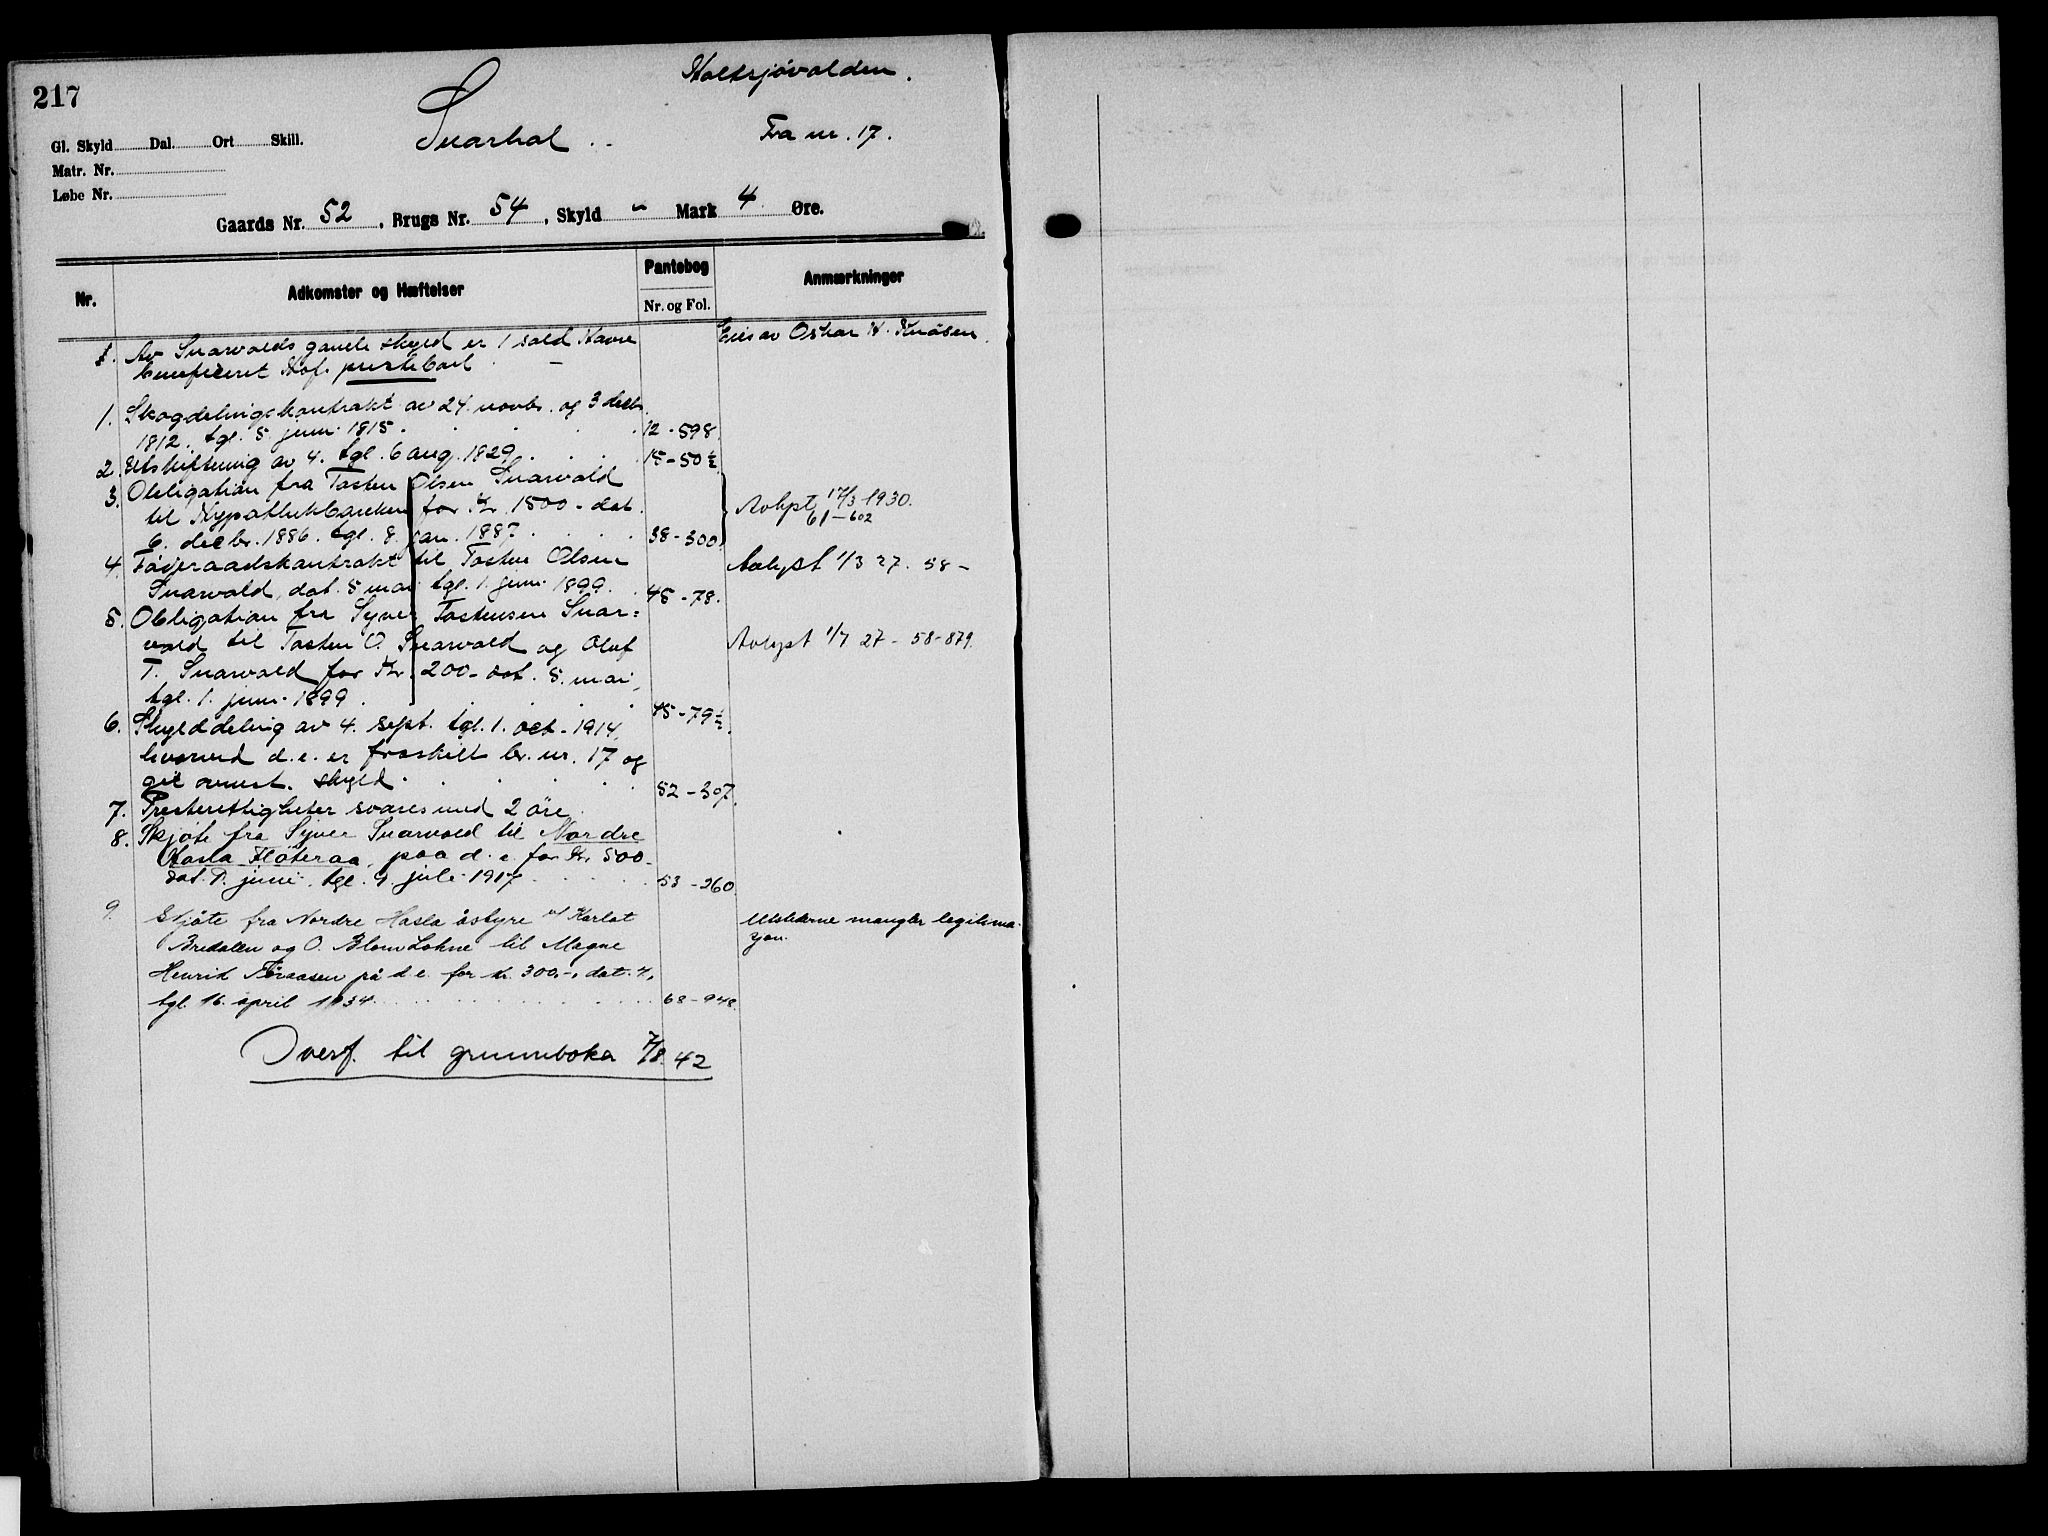 217
Holtsjøvolden.
Snarhol
Fra nr. 17.
Gl. Skyld Dal. Ort Skill.
Matr. Nr.
Løbe Nr.
Gaards Nr. 52, Brugs Nr. 54, Skyld " Mark 4 Øre.
Nr. Adkomster og Hæftelser Pantebog Anmærkninger
Nr. og Fol.
1. Av Snarvolds gamle skyld er 1 sold Havre Eies av Oskar H.
beneficeret Hof prestebol
1. Skogdelingskontrakt av 24. novbr. og 3 decbr.
1812, tgl. 5 juni 1815. 12-598.
2. Utskiftning av 4. tgl. 6 aug. 1829. 15-50½
3. Obligation fra Tosten Olsen Snarvold
til Hypothekbanken for Kr. 1500- dat. Avlyst 17/3 1930.
6. decbr. 1886. tgl. 8. jan. 1887. 38-300. 61-602
4. Føderaadskontrakt til Tosten Olsen Avlyst 1/3 27. 58-
Snarvold, dat. 5 mai tgl. 1. juni 1899. 45-78.
5. Obligation fra Syver Tostensen Snar=
vold til Tosten O. Snarvold og Olof Avlyst 1/7 27-58-879.
T. Snarvold for Kr. 200- dat. 5. mai,
tgl. 1. juni 1899. 45-79½.
6. Skylddeling av 4. sept. tgl. 1. oct. 1914,
hvorved d. e. er fraskilt br. nr. 17 og
git ovenst. skyld. 52-307.
7. Presterettigheter svares med 2 öre.
8. Skjöte fra Syver Snarvold til Nordre
Hasla Flöteraa, paa d. e. for Kr. 500-
dat. juni, tgl. juli 1917. 53-260.
9. Skjöte fra Nordre Hasla åstyre v/ Karlot Utstederne mangler legitima-
Bredalen og O. Blom Lohne til Magne sjon.
Henrik på d. e. for kr. 300,-, dat. 4,
tgl. 16. april 1934. 68-948.
Overf. til grunnboka 7/8. 42